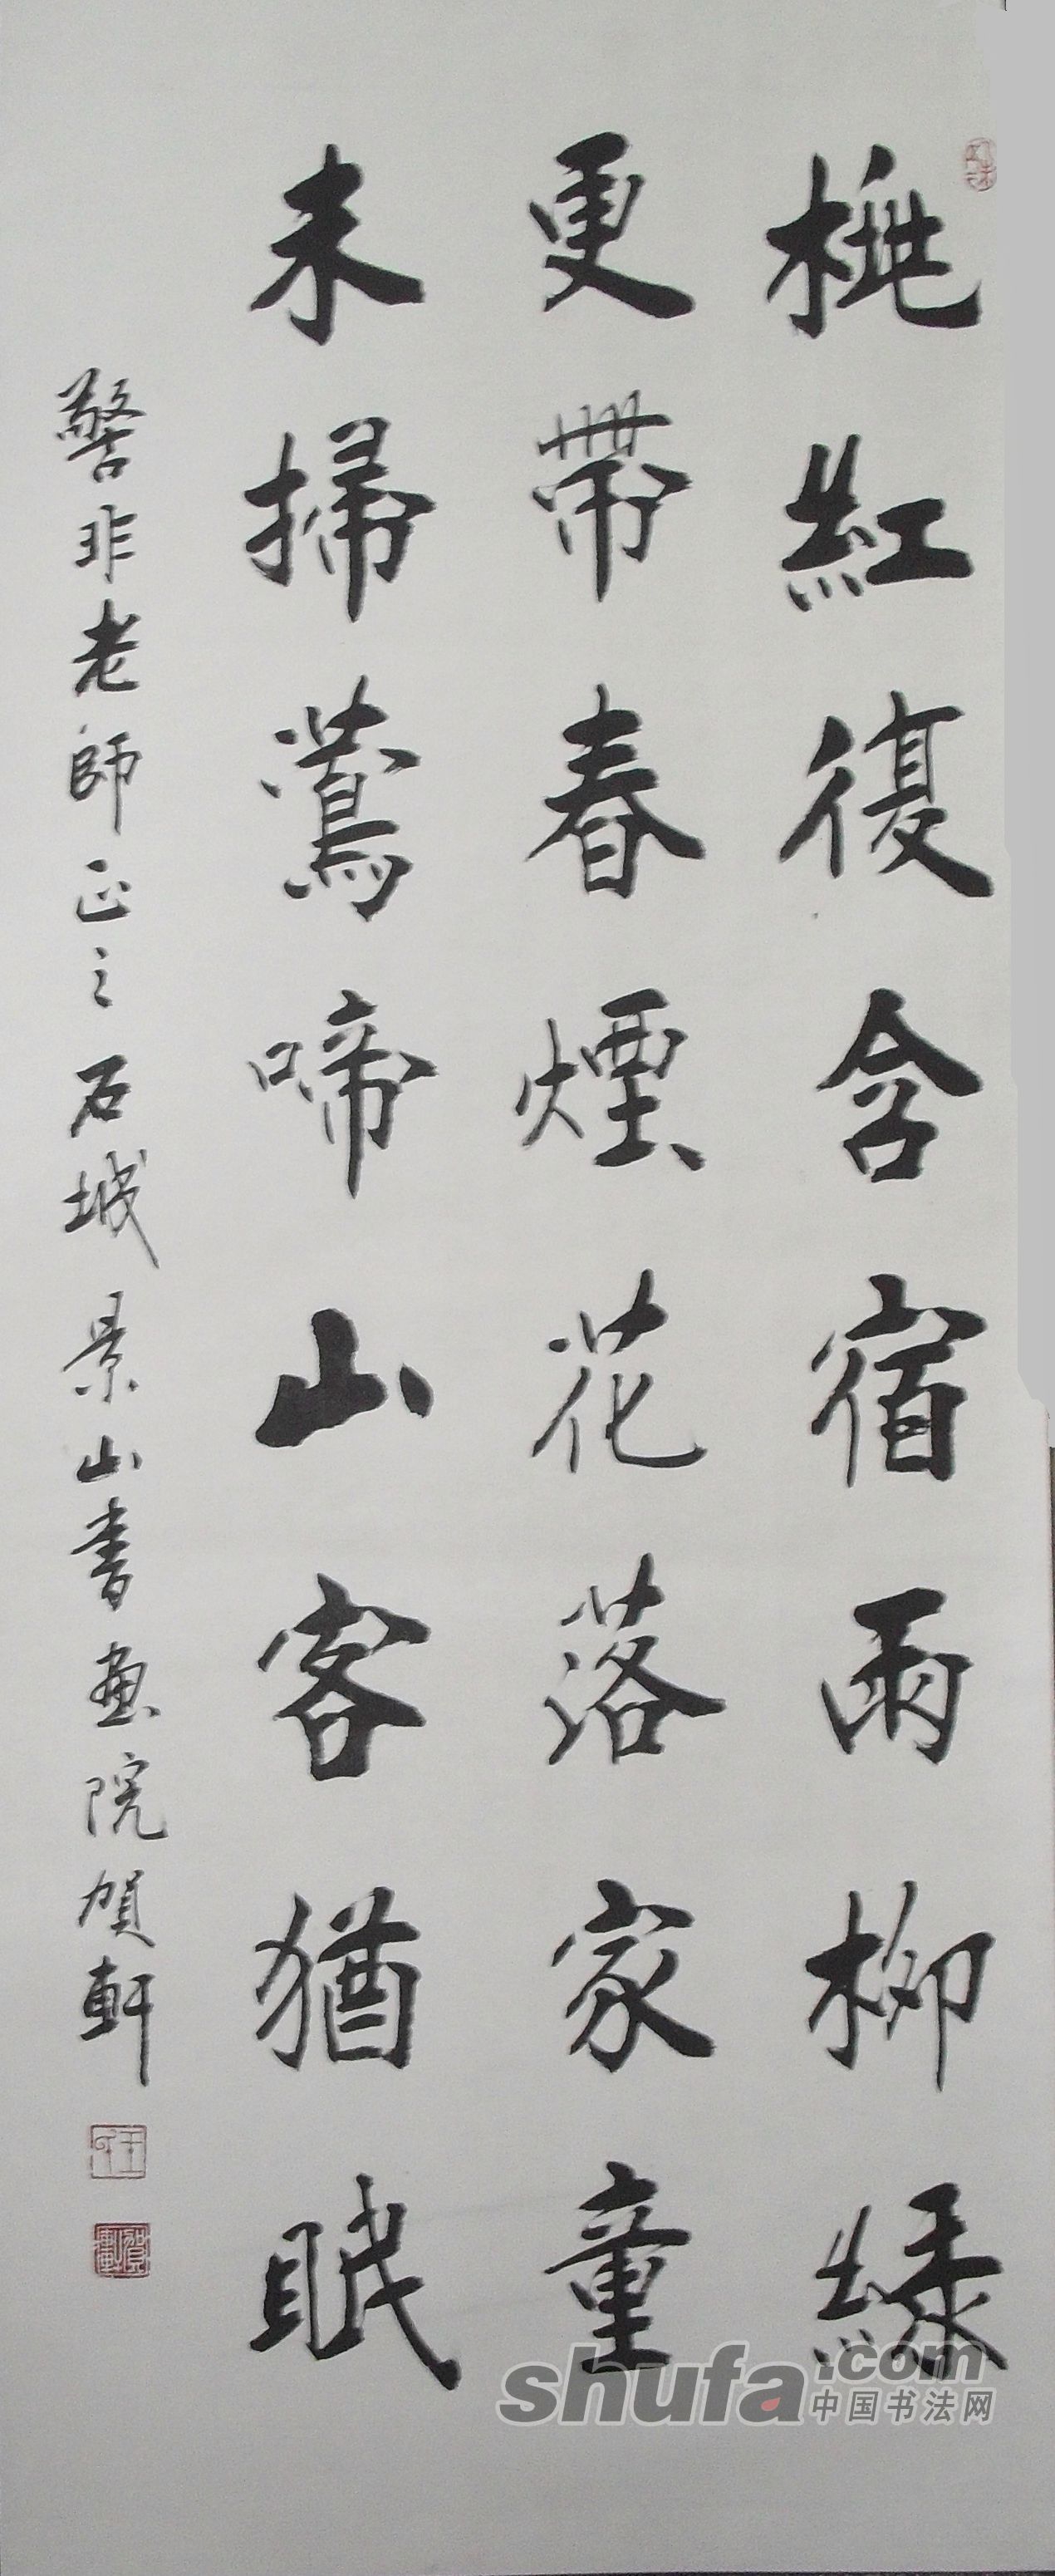 桃紅復含宿雨柳緑
更帶春煙花落家童
未掃鶯啼山客猶眠
警非老師正之石城景山書畫院賀軒
shufa.com
中国书法网